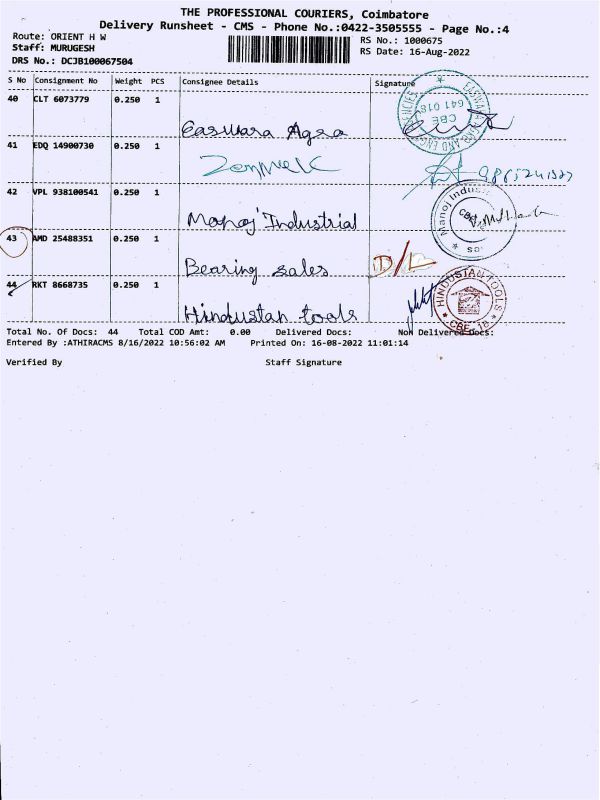 THE PROFESSIONAL COURIERS, Coimbatore
Delivery Runsheet - CMS - Phone No.:0422-3505555 - Page No.:4
Route: ORIENT H W
RS No.: 1000675
Staff: MURUGESH
RS Date: 16-Aug-2022
DRS No.: DCJB100067504
S No Consignment No Weight PCS Consignee Details Signature
40 CLT 6073779 0.250 1
Easwara Agro
641 018
CBE
41 EDQ 14900730 0.250 1
42 VPL 938100541 0.250 1
Manoj Industrial
Manoj Indus
43 AMD 25488351 0.250 1
Bearing sales D/L
44 RKT 8668735 0.250 1
Hindustan tools
HINDUSTAN TOOLS
* CBE - 18 *
Total No. Of Docs: 44 Total COD Amt: 0.00 Delivered Docs: Non Delivered Docs:
Entered By :ATHIRACMS 8/16/2022 10:56:02 AM Printed On: 16-08-2022 11:01:14
Verified By Staff Signature